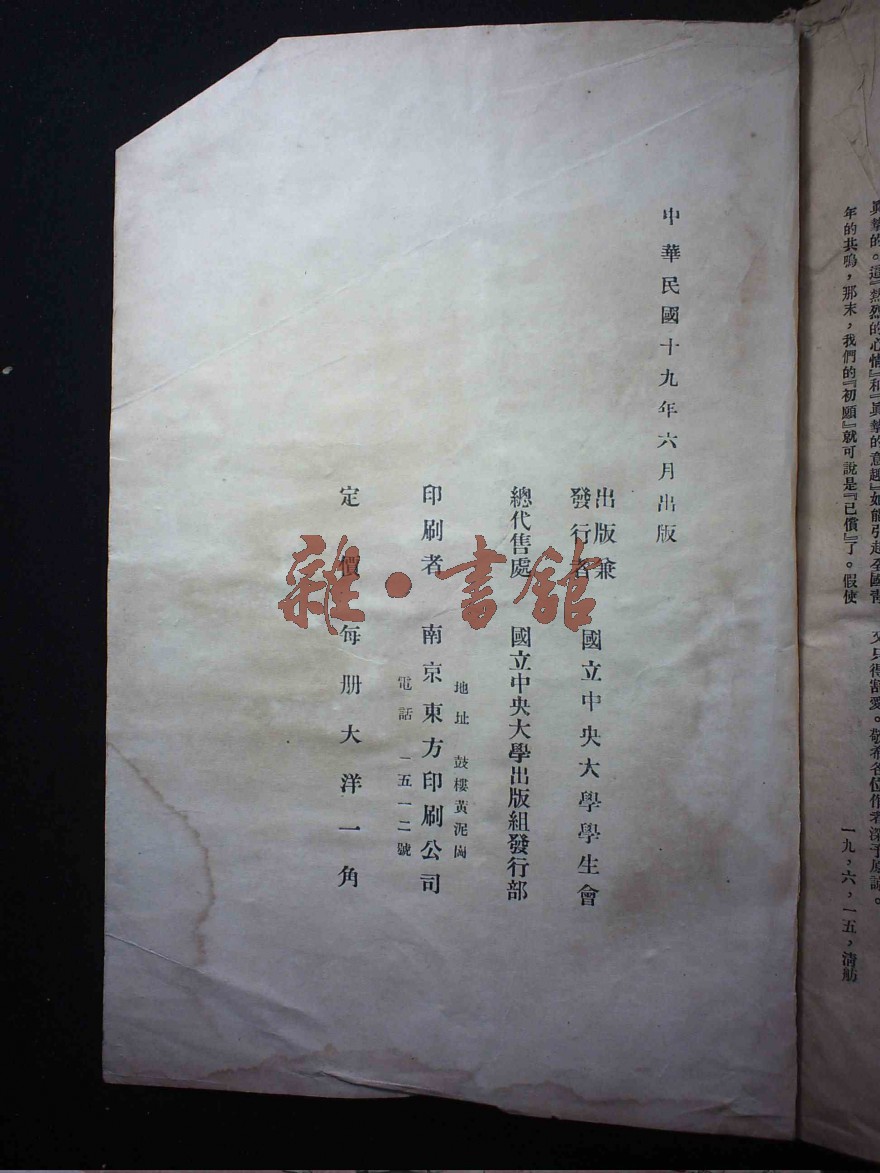 真摯的。這『熱烈的心情』和『真摯的意趣』如能引起全國青
年的共鳴,那末,我們的『初願』就可說是『已償』了。假使
又只得割愛。敬希各位作者深予原諒。
一九,六,一五,清舫
中華民國十九年六月出版
出版兼
發行者 國立中央大學學生會
總代售處 國立中央大學出版組發行部
地址 鼓樓黃泥崗
印刷者 南京東方印刷公司
電話 一五一二號
定價 每册大洋一角
雜·書館